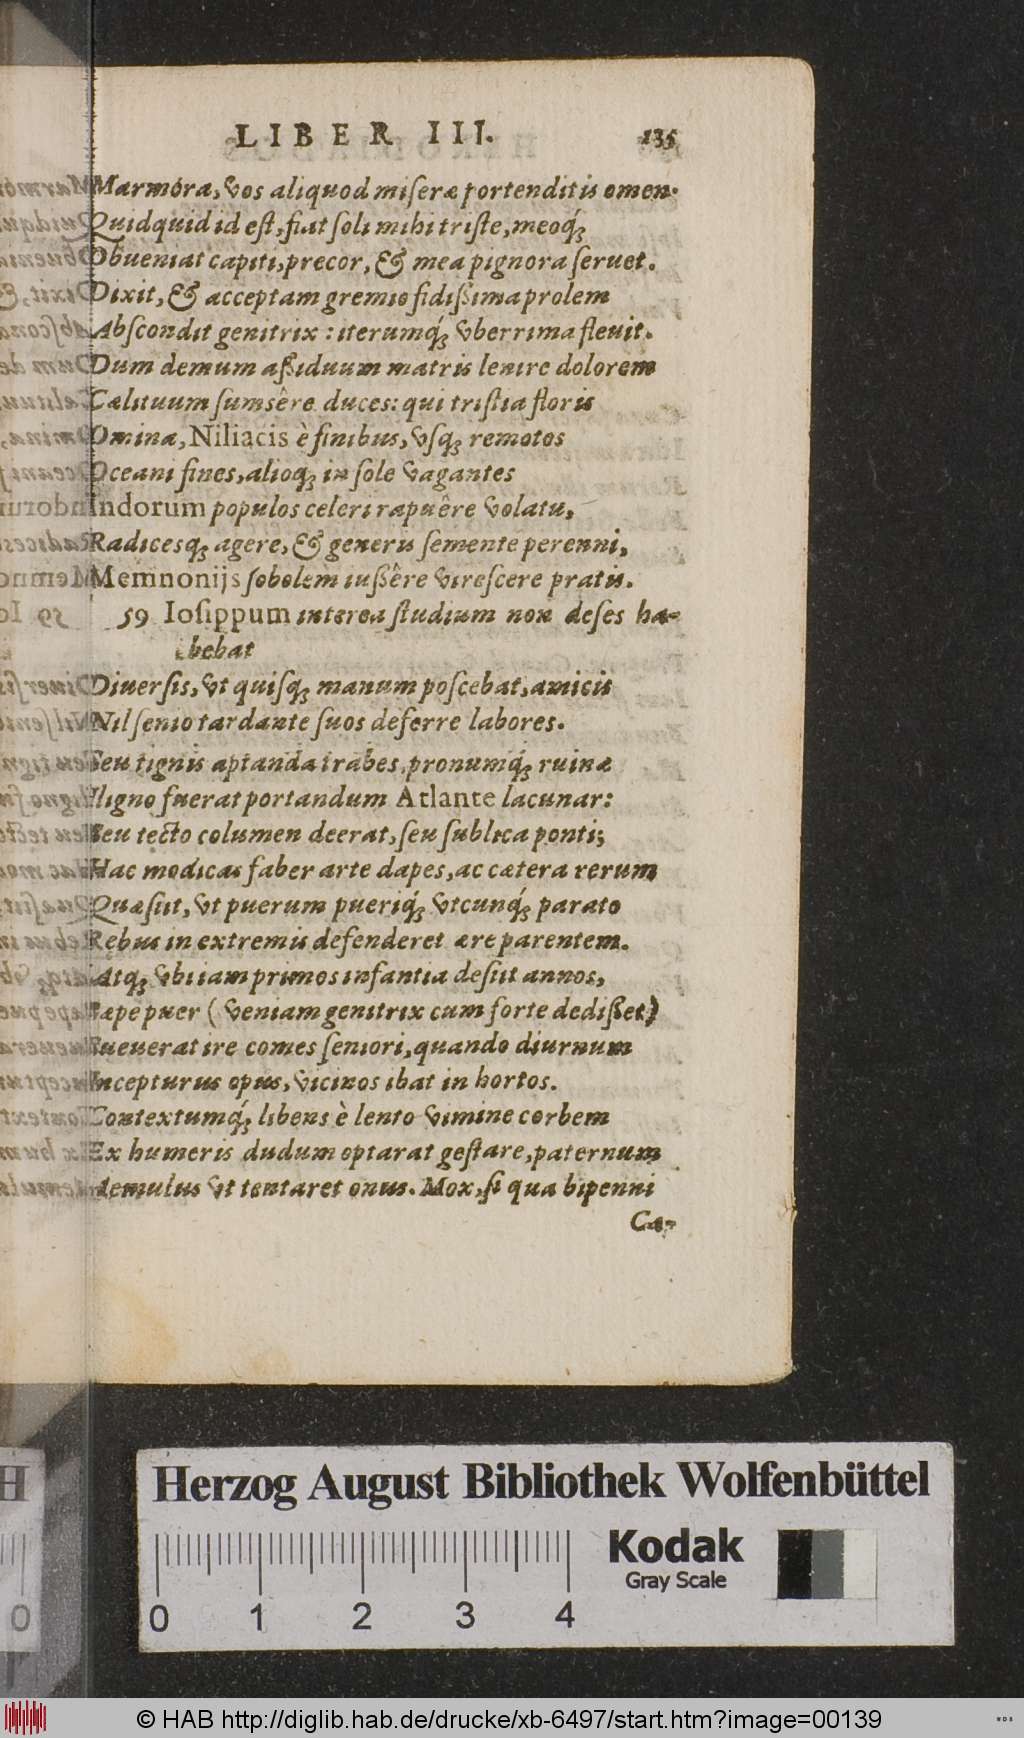 LIBER III. 135
Marmora, vos aliquod miseræ portenditis omen.
Quidquid id est, fiat soli mihi triste, meoq́;
Obueniat capiti, precor, & mea pignora seruet.
Dixit, & acceptam gremio fidißima prolem
Abscondit genitrix: iterumq́; vberrima fleuit.
Dum demum aßiduum matris lenire dolorem
Cælituum sumsêre duces: qui tristia floris
Omina, Niliacis è finibus, vsq; remotos
Oceani fines, alioq; in sole vagantes
Indorum populos celeri rapuêre volatu,
Radicesq; agere, & generis semente perenni,
Memnonijs sobolem iußêre virescere pratis.
59 Iosippum interea studium non deses ha-
bebat
Diuersis, vt quisq; manum poscebat, amicis
Nil senio tardante suos deferre labores.
Seu tignis aptanda trabes, pronumq́; ruinæ
Iligno fuerat portandum Atlante lacunar:
Seu tecto columen deerat, seu sublica ponti;
Hac modicas faber arte dapes, ac cætera rerum
Quæsiit, vt puerum pueriq́; vtcunq́; parato
Rebus in extremis defenderet ære parentem.
Atq; vbi iam primos infantia desiit annos,
Sæpe puer (veniam genitrix cum forte dedißet)
Sueuerat ire comes seniori, quando diurnum
Incepturus opus, vicinos ibat in hortos.
Contextumq́; libens è lento vimine corbem
Ex humeris dudum optarat gestare, paternum
Aemulus vt tentaret onus. Mox, si qua bipenni
Cæ-
Herzog August Bibliothek Wolfenbüttel
Kodak
Gray Scale
0 1 2 3 4
© HAB http://diglib.hab.de/drucke/xb-6497/start.htm?image=00139